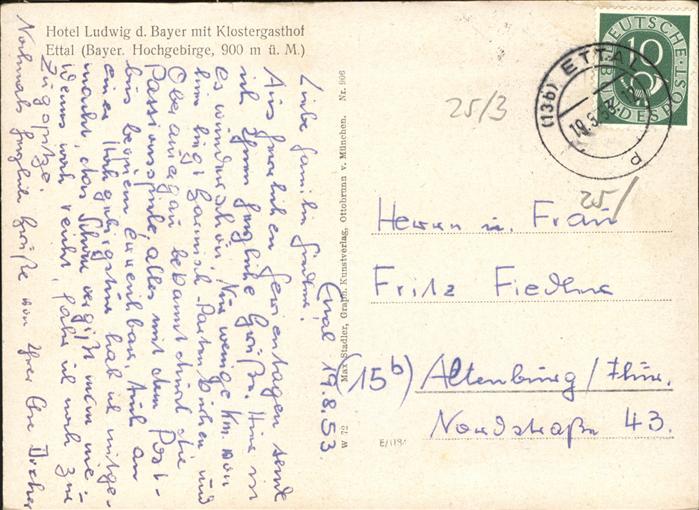 Hotel Ludwig d. Bayer mit Klostergasthof
Ettal (Bayer. Hochgebirge, 900 m ü. M.)
Ettal 19.8.53
Liebe Familie
Aus herrlichen Ferientagen sende
ich Ihnen herzliche Grüße. Hier ist
es wunderschön. Nur wenige Km. von
hier liegt Garmisch Partenkirchen und
Oberammergau bekannt durch die
Passionsspiele, alles mit dem Post-
bus bequem erreichbar. Auch an
einer Hochgebirgstour hab ich mitge-
macht, das Schöne vergißt man nie.
Wenns noch reicht, fahre ich noch zur
Zugspitze.
Nochmals herzliche Grüße von Ihrer
W 72
Max Stadler, Graph. Kunstverlag, Ottobrunn v. München. Nr. 906
25/3
25/
DEUTSCHE
BUNDESPOST
10
(13b) ETTAL
d
Herrn u. Frau
Fritz Fiedler
(15b) Altenburg/Thür.
Nordstraße 43.